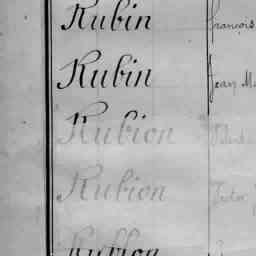 Rubin François
Rubin Jean
Rubion
Rubion Victor